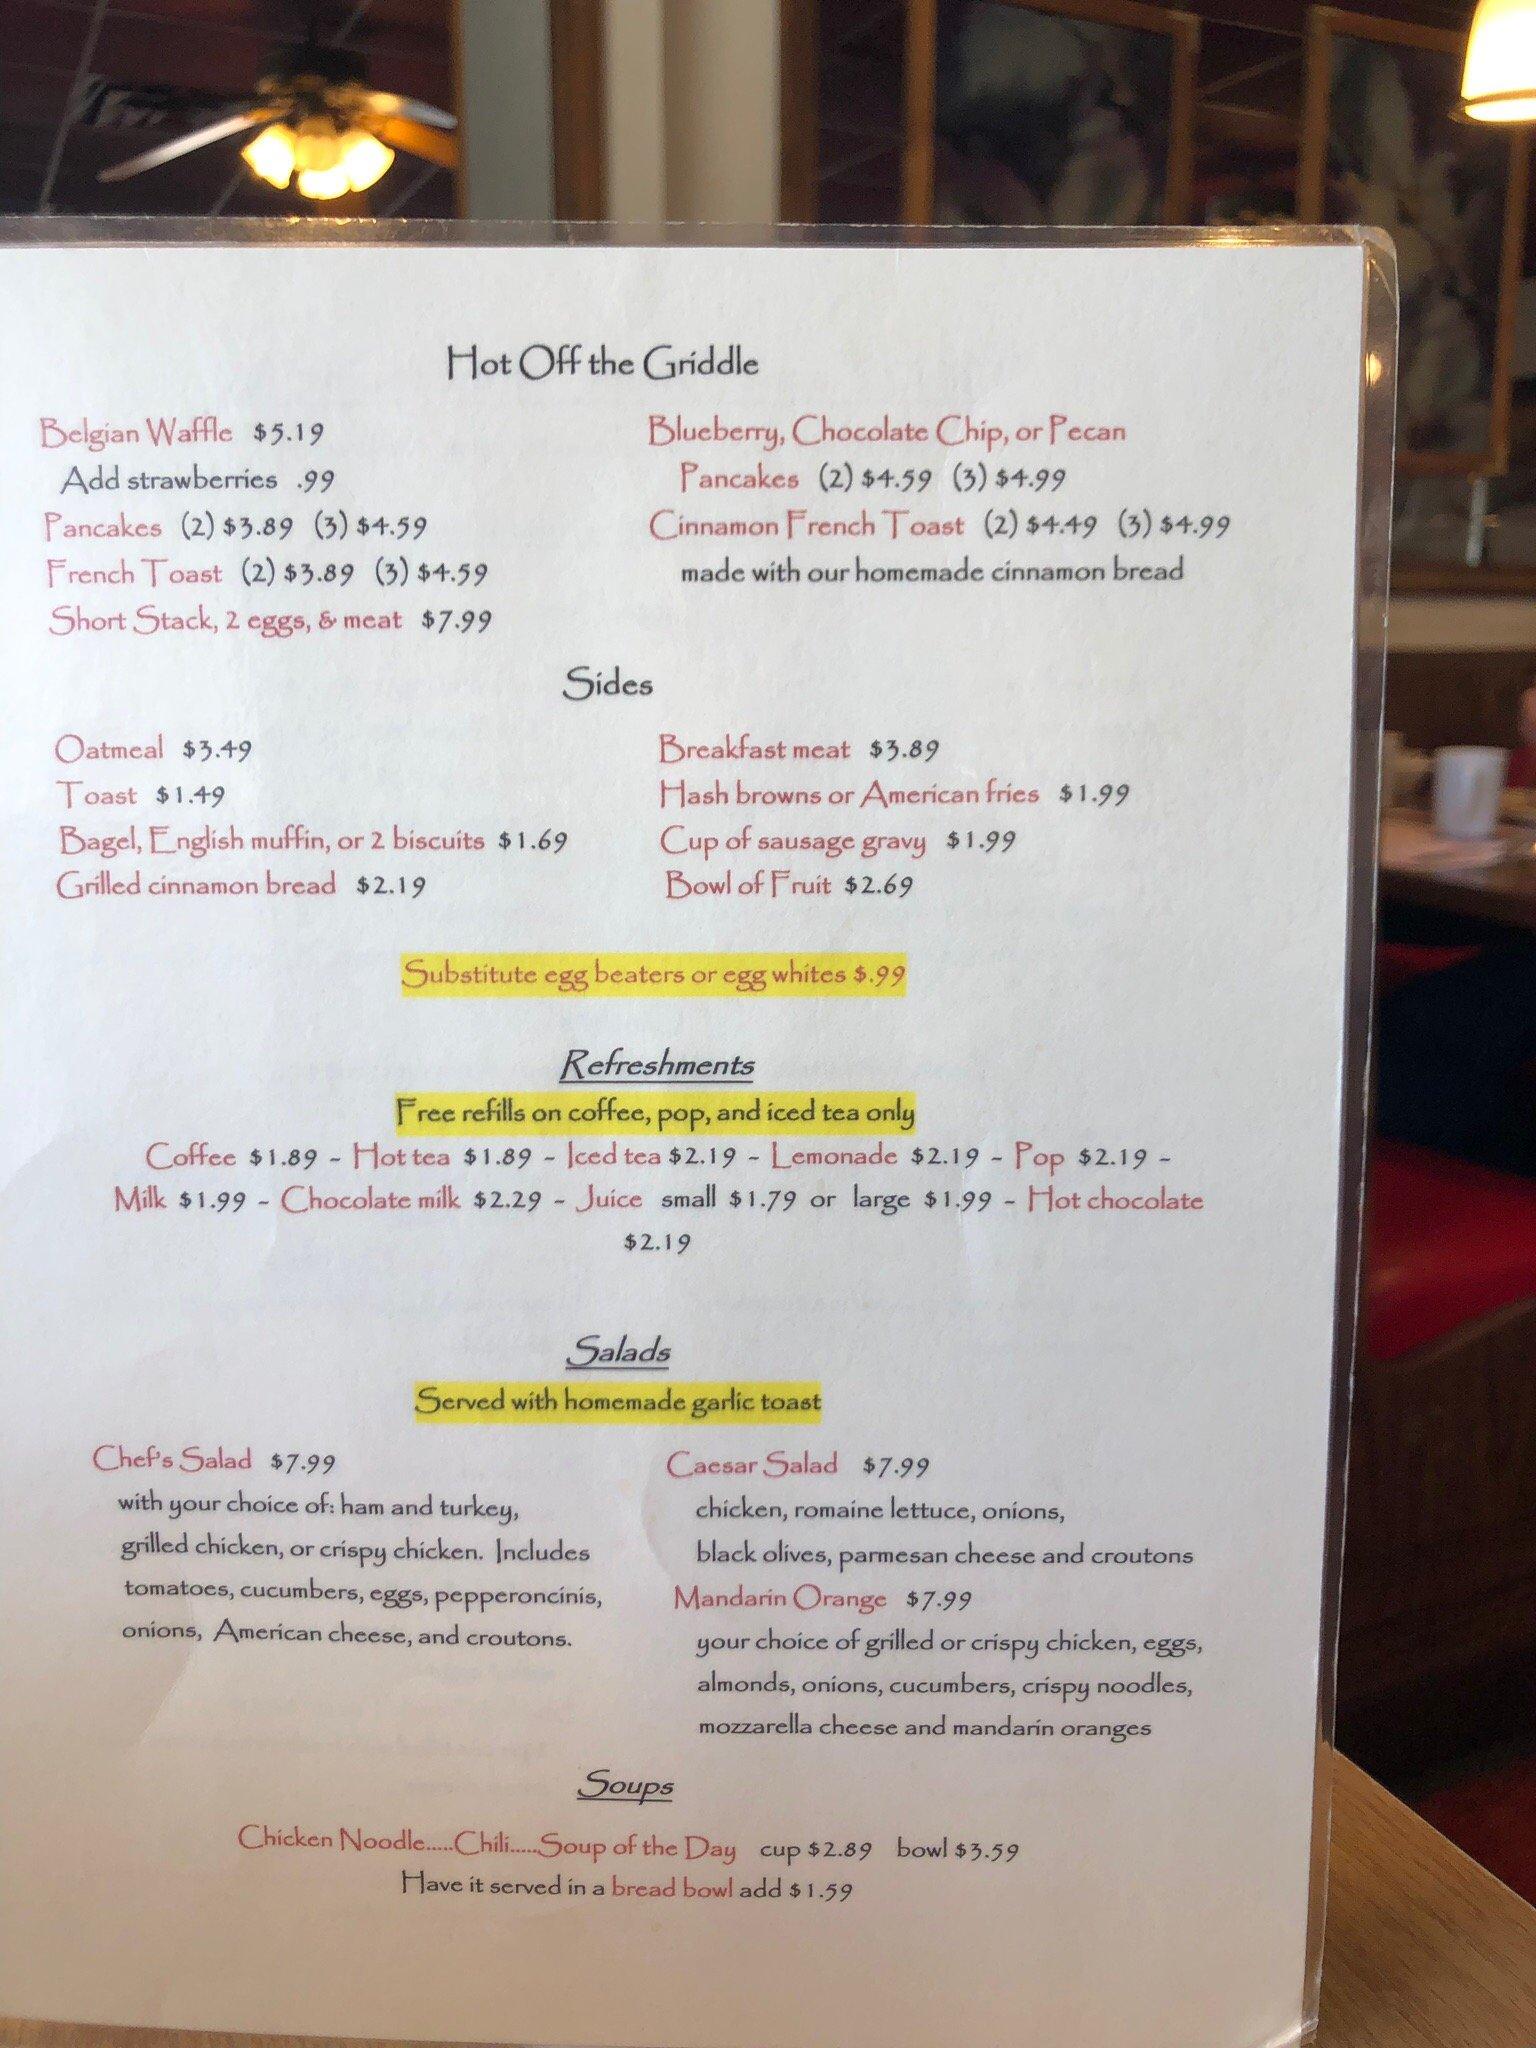 Hot Off the Griddle
Belgian Waffle $5.19
Add strawberries .99
Pancakes (2) $3.89 (3) $4.59
French Toast (2) $3.89 (3) $4.59
Short Stack, 2 eggs, & meat $7.99
Blueberry, Chocolate Chip, or Pecan
Pancakes (2) $4.59 (3) $4.99
Cinnamon French Toast (2) $4.49 (3) $4.99
made with our homemade cinnamon bread
Sides
Oatmeal $3.49
Toast $1.49
Bagel, English muffin, or 2 biscuits $1.69
Grilled cinnamon bread $2.19
Breakfast meat $3.89
Hash browns or American fries $1.99
Cup of sausage gravy $1.99
Bowl of Fruit $2.69
Substitute egg beaters or egg whites $.99
Refreshments
Free refills on coffee, pop, and iced tea only
Coffee $1.89 - Hot tea $1.89 - Iced tea $2.19 - Lemonade $2.19 - Pop $2.19 -
Milk $1.99 - Chocolate milk $2.29 - Juice small $1.79 or large $1.99 - Hot chocolate
$2.19
Salads
Served with homemade garlic toast
Chef's Salad $7.99
with your choice of: ham and turkey,
grilled chicken, or crispy chicken. Includes
tomatoes, cucumbers, eggs, pepperoncinis,
onions, American cheese, and croutons.
Caesar Salad $7.99
chicken, romaine lettuce, onions,
black olives, parmesan cheese and croutons
Mandarin Orange $7.99
your choice of grilled or crispy chicken, eggs,
almonds, onions, cucumbers, crispy noodles,
mozzarella cheese and mandarin oranges
Soups
Chicken Noodle.....Chili.....Soup of the Day cup $2.89 bowl $3.59
Have it served in a bread bowl add $1.59